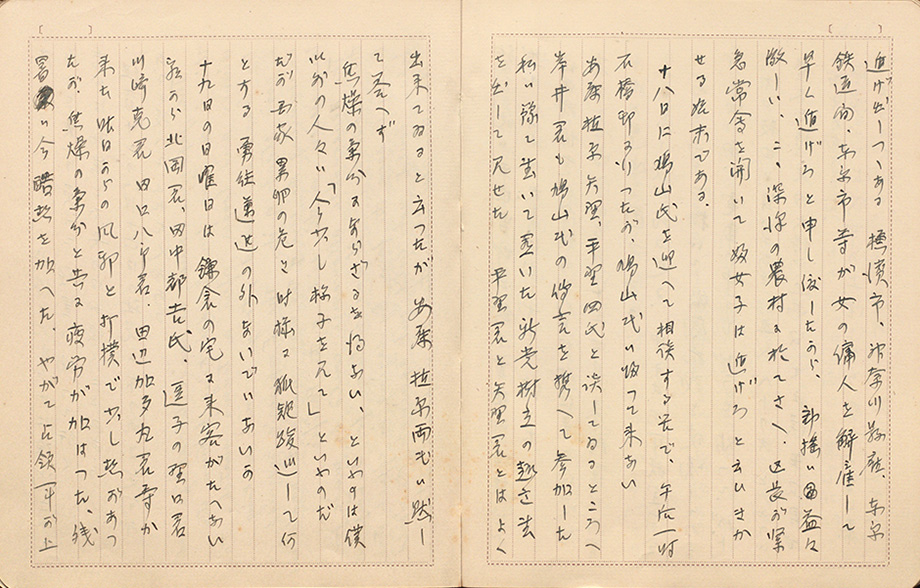 逃げ出しつゝある 横浜市、神奈川県庁、東京
鉄道局、東京市等が女の傭人を解雇して
早く逃げろと申し渡したから、動揺は益々
激しい、こゝ深沢の農村に於てさへ、区長が緊
急常会を開いて婦女子は逃げろと云ひきか
せる始末である。
十八日に鳩山氏を迎へて相談する筈で、午后一時
石橋邸に行つたが、鳩山氏は帰つて来ない
安藤 植原 矢野、平野 四氏と談してゐるところへ
岸井君も鳩山氏の伝言を携へて参加した
私は予て書いて置いた新党樹立の趣意書
を出して見せた 平野君と矢野君とはよく
出来てゐると云つたが 安藤 植原両氏は黙し
て答へず
焦燥の気分にあらざるを得ない、といふのは僕
以外の人々は「今少し様子を見て」といふのだ
だが国家累卵の危き時機に狐疑逡巡して何
とする 勇往邁進の外ないではないか
十九日の日曜日は鎌倉の宅に来客がたへない
北岡君、田中都吉氏、逗子の野口君
川崎克君 田口八郎君、田辺加多丸君等が
来た 昨日からの風邪と打撲で少し熱があつ
たが 焦燥の気分と共に疲労が加はつた、残
暑は今酷熱を加へた、やがて占領軍が上